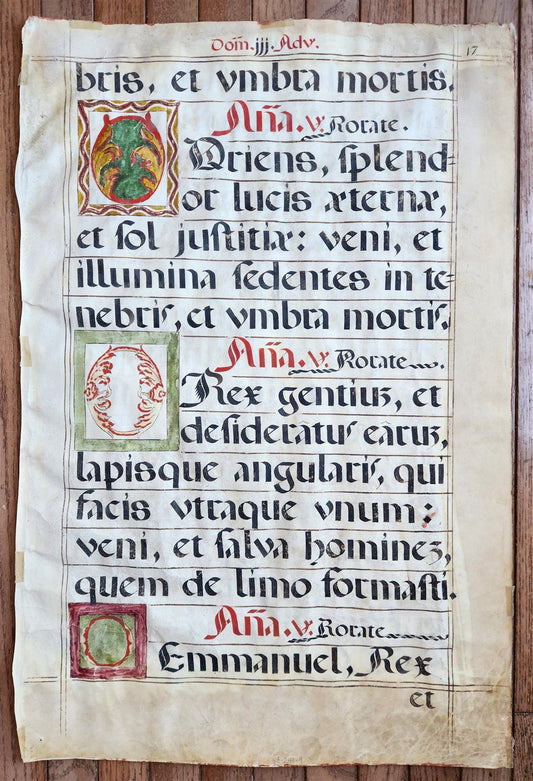 Dom̃. jjj. Adv. 17
bris, et vmbra mortis.
Añã. v. Rorate.
O Oriens, ſplend=
or lucis æternæ,
et ſol juſtitiæ: veni, et
illumina ſedentes in te=
nebris, et vmbra mortis.
Añã. v. Rorate
O Rex gentiuʒ, et
deſideratus eâruʒ,
lapisque angularis, qui
facis vtraque vnum:
veni, et ſalva homineʒ,
quem de limo formaſti.
Añã. v. Rorate
O Emmanuel, Rex
et